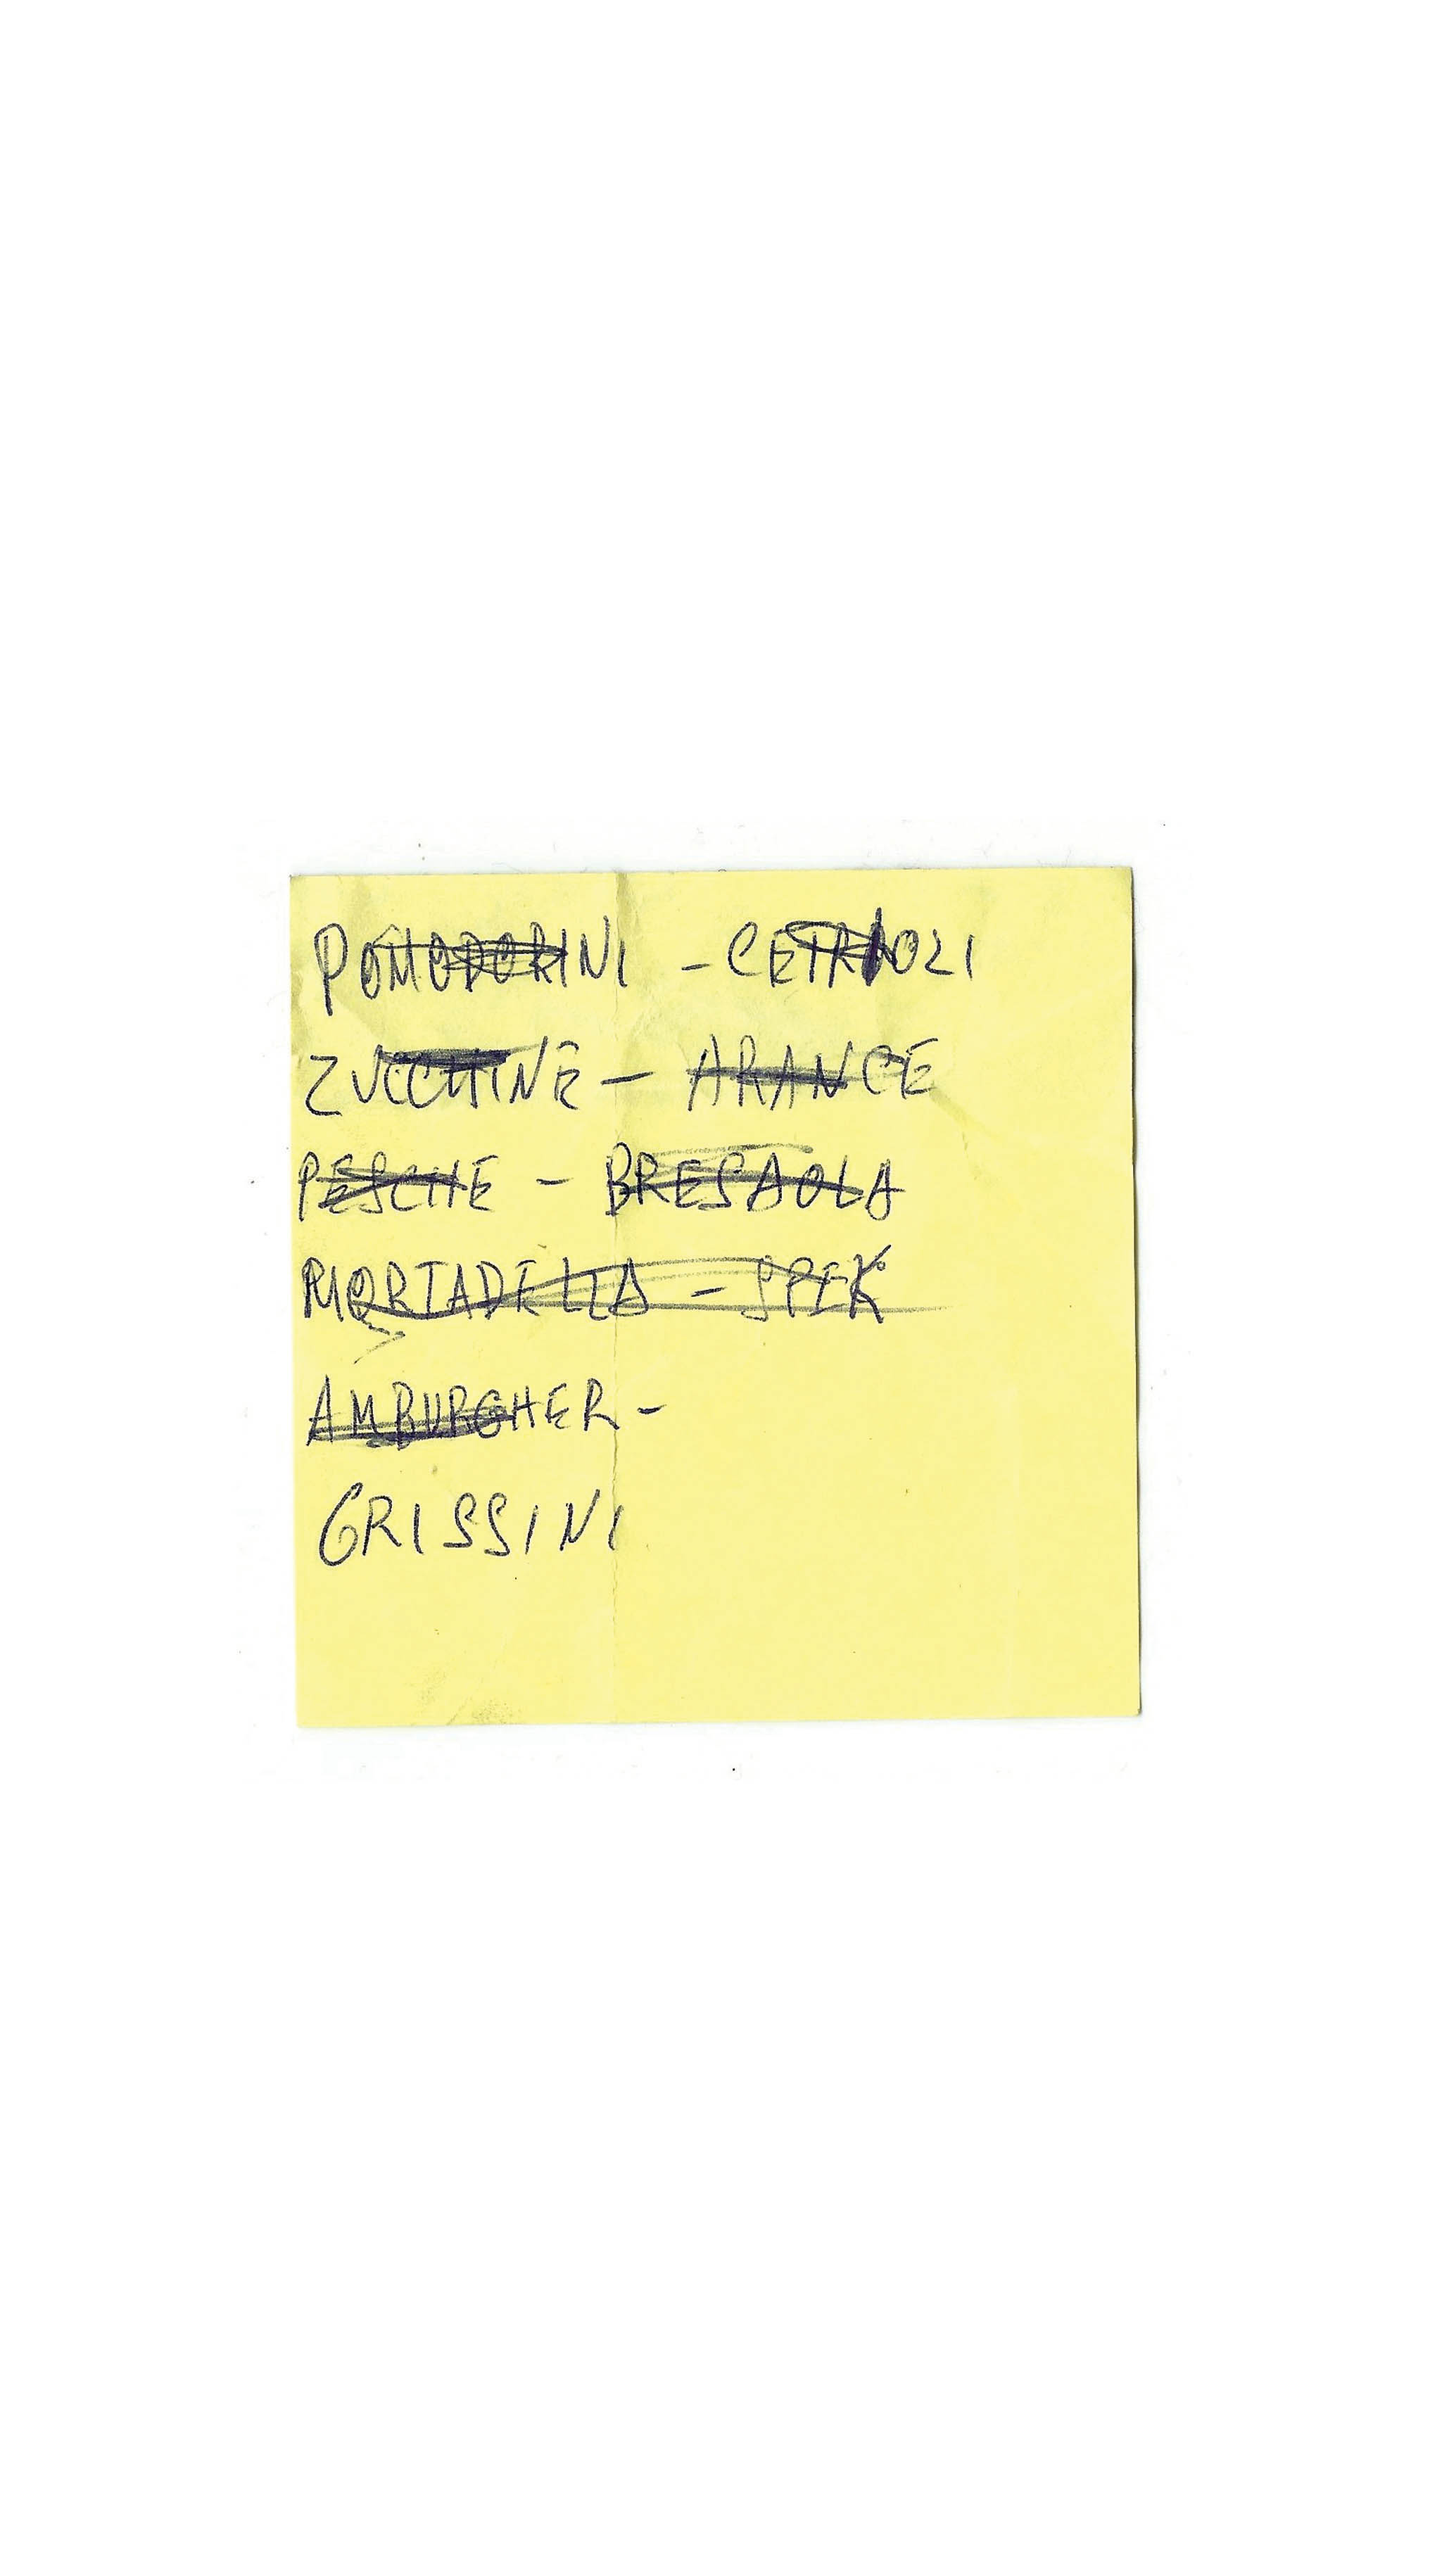 POMODORINI - CETRIOLI
ZUCCHINE - ARANCE
PESCHE - BRESAOLA
MORTADELLA - SPEK
AMBURGHER -
GRISSINI